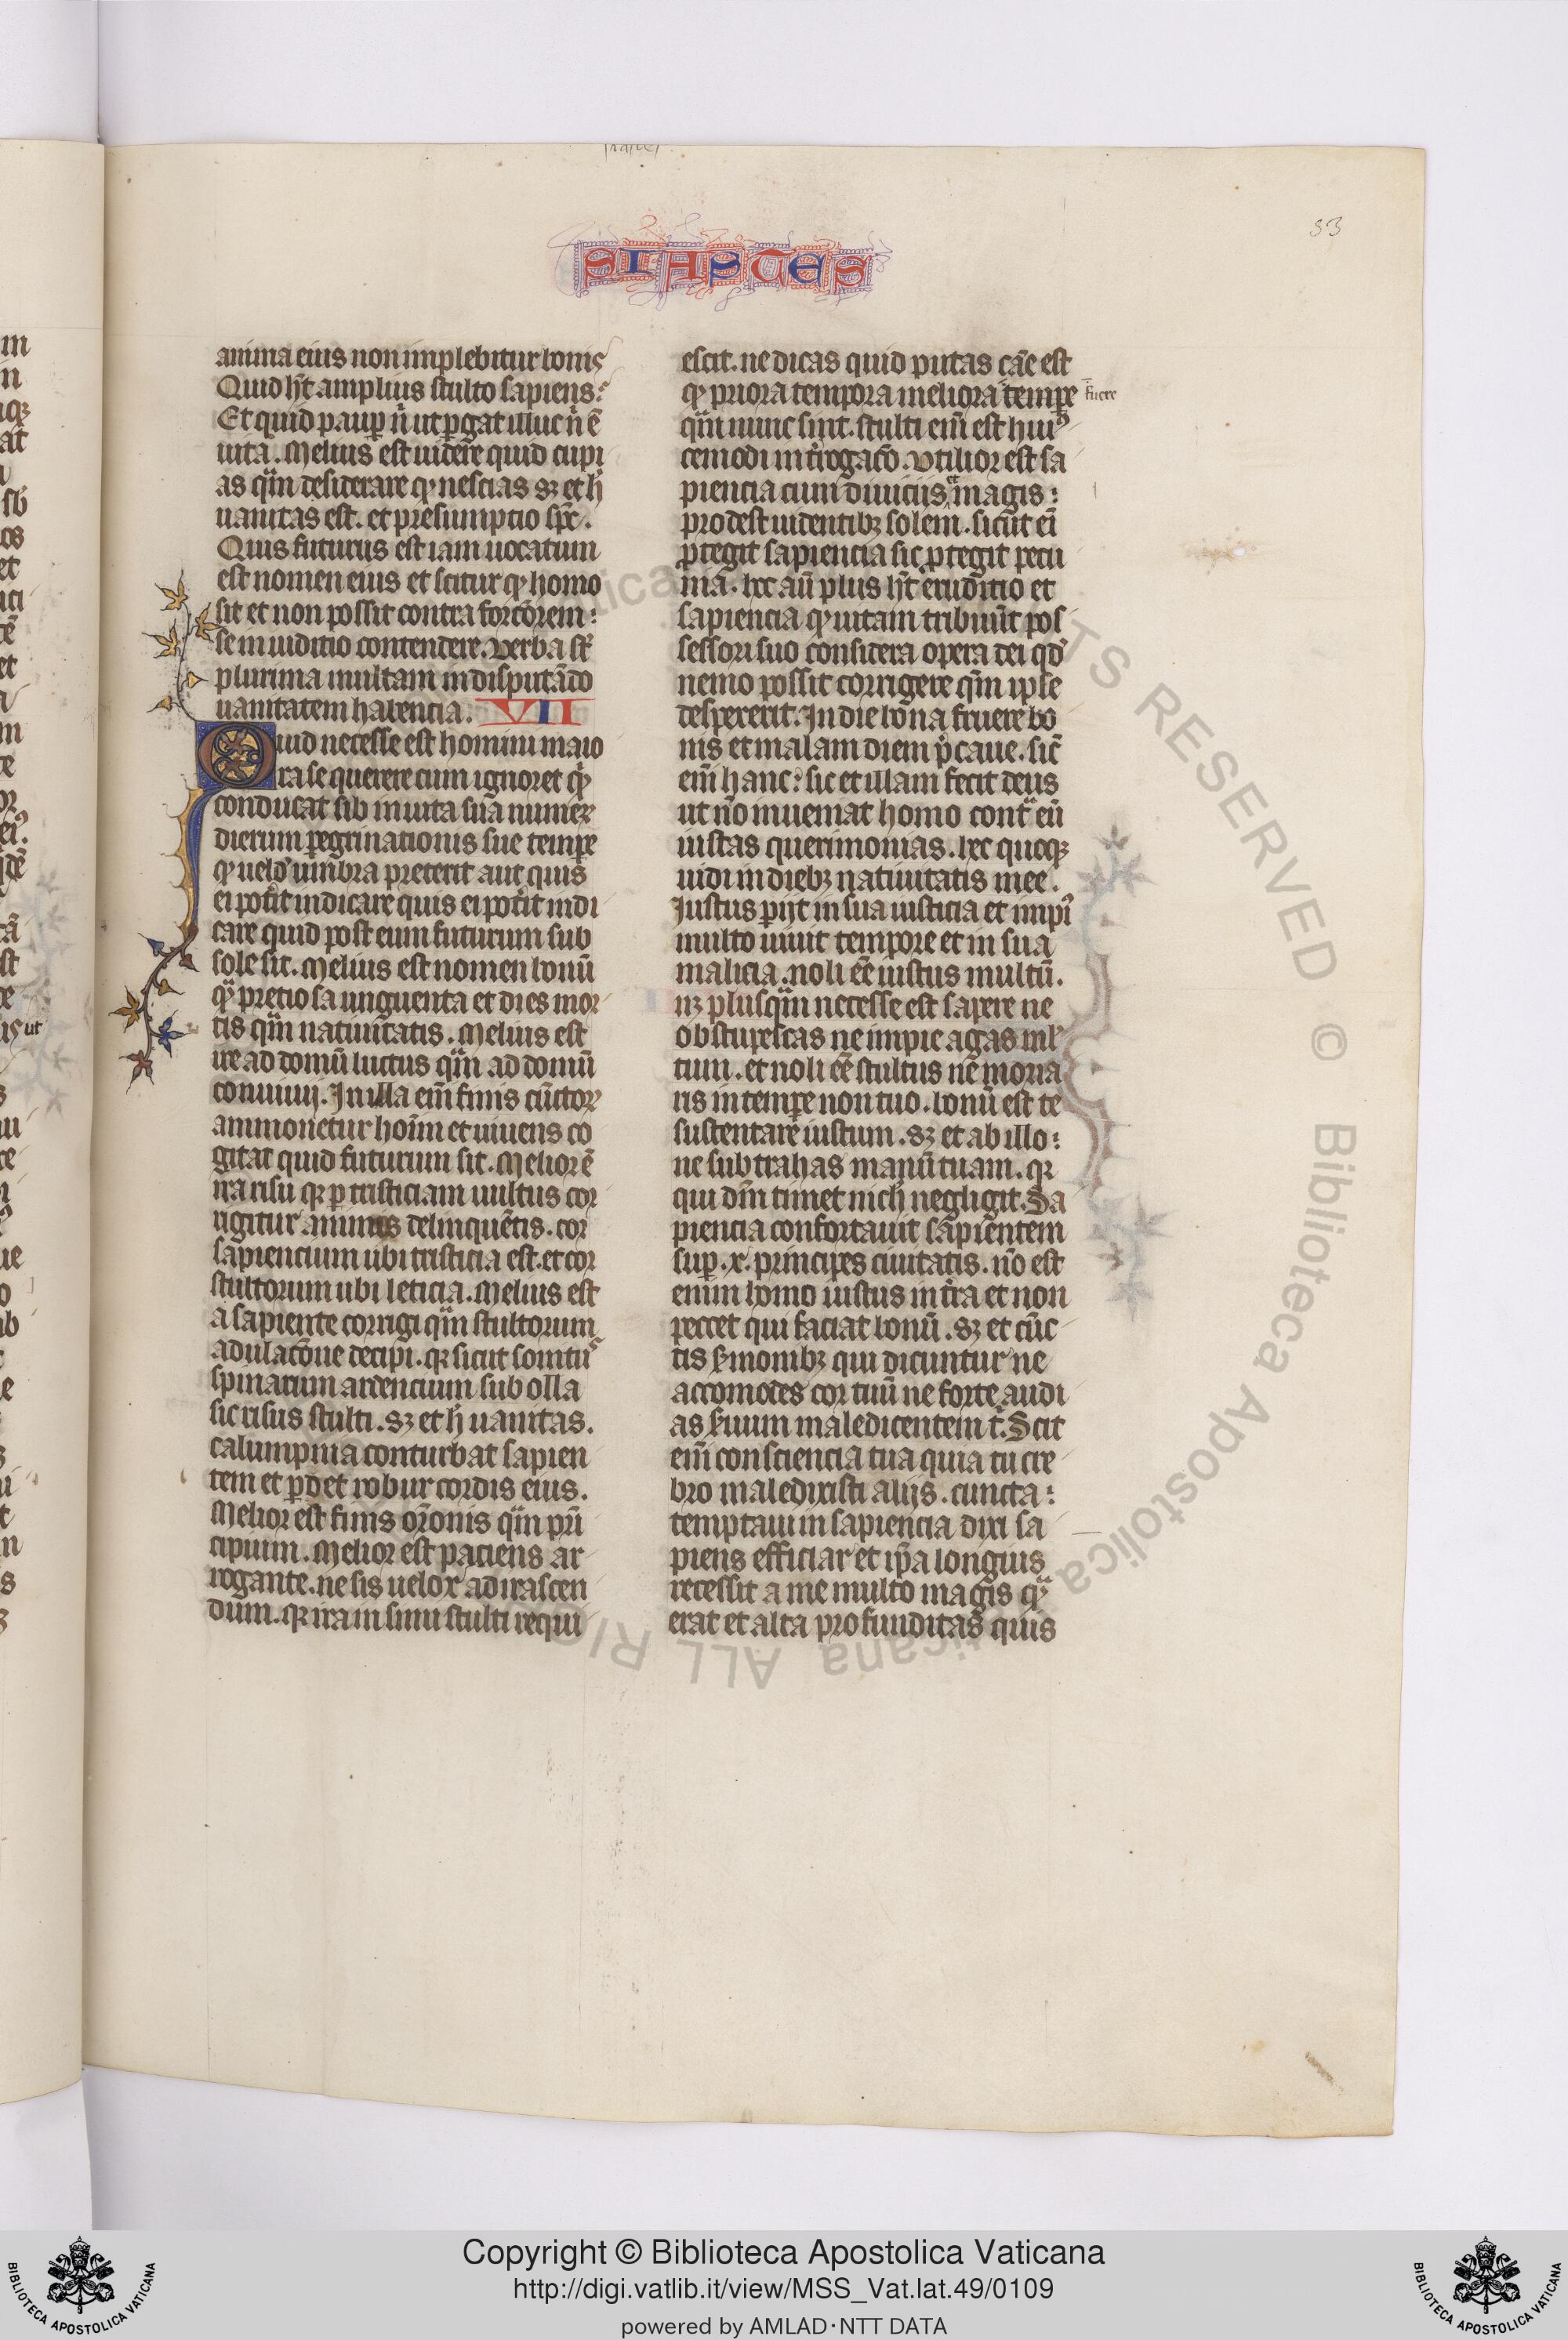 33
SIASTES
anima eius non implebitur bonis
Quid hȝt amplius stulto sapiens?
Et quid paup̲ n̄ ut p̲gat illuc ubi ē
uita. Melius est uidere quid cupi
as qͣm desiderare qͦ nescias sȝ et h̄
uanitas est. et presumptio sp̄c.
Quis futurus est iam uocatum
est nomen eius et scitur qͦ homo
sit et non possit contra forc̄orem:
se in iuditio contendere. Verba st̄
plurima multam in disputādo
uanitatem habencia. VII
Quid necesse est homini maio
ra se querere cum ignoret qͥd
conducat sib̄ in uita sua numeꝝ
dierum p̲egrinationis sue temp̲e
qͦ uelud umbra preterit aut quis
ei pot̄it indicare quis ei pot̄it indi
care quid post eum futurum sub
sole sit. Melius est nomen bonū
qͣm preciosa unguenta et dies mor
tis qͣm natiuitatis. Melius est
ire ad domū luctus qͣm ad domū
conuiuij. In illa em̄ finis cūctoꝝ
ammonetur hoīm et uiuens co
gitat quid futurum sit. Melior ē
ira risu qꝛ p̲ tristiciam uultus cor
rigitur animus delinquētis. cor
sapiencium ubi tristicia est. et cor
stultorum ubi leticia. Melius est
a sapiente corrigi qͣm stultorum
adulac̄one decipi. qꝛ sicut sonitus
spinarum ardencium sub olla
sic risus stulti. sȝ et h̄ uanitas.
calumpnia conturbat sapien
tem et p̲det robur cordis eius.
Melior est finis or̄onis qͣm prī
cipium. Melior est paciens ar
rogante. ne sis uelox ad irascen
dum. qꝛ ira in sinu stulti requi
escit. ne dicas quid putas cāe est
qͦ priora tempora meliora temp̲e fuere
qͣm nunc sint. stulti em̄ est huiꝰ
cemodi int̄rogac̄o. Vtilior est sa
piencia cum diuiciis ͣ magis:
prodest uidentibȝ solem. sicut eī
p̲tegit sapiencia sic p̲tegit pecu
niā. hec aū plus hȝt eruditio et
sapiencia qͦ uitam tribuūt pos
sessori suo considera opera dei qd̄
nemo possit corrigere qm̄ ipse
despexerit. In die bona fruere bo
nis et malam diem p̄caue. sic̄
em̄ hanc: sic et illam fecit deus
ut nō inueniat homo contͣ eū
iustas querimonias. hec quoqȝ
uidi in diebȝ natiuitatis mee.
Iustus p̲ijt in sua iusticia et impiꝰ
multo uiuit tempore et in sua
malicia. noli eē iustus multū.
nȝ plusqͣm necesse est sapere ne
obstupescas ne impie agas ml̄
tum. et noli eē stultus nē moria
ris in temp̲e non tuo. bonū est te
sustentare iustum. sȝ et ab illo:
ne subtrahas manū tuam. qꝛ
qui dm̄ timet nich̄ negligit. Sa
piencia confortauit sapientem
sup̲ .x. principes ciuitatis. nō est
enim homo iustus in t̄ra et non
peccet qui faciat bonū. sȝ et cūc
tis s̄monibȝ qui dicuntur ne
accomodes cor tuū ne forte audi
as s̄uum maledicentem tͥ. Scit
em̄ consciencia tua quia tu cre
bro maledixisti alijs. cuncta:
temptaui in sapiencia dixi sa
piens efficiar et ip̄a longius
recessit a me multo magis qͣm
erat et alta profunditas quis
Copyright © Biblioteca Apostolica Vaticana
http://digi.vatlib.it/view/MSS_Vat.lat.49/0109
powered by AMLAD·NTT DATA